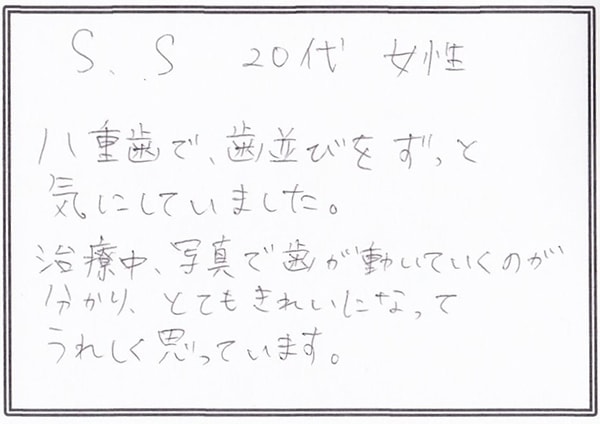 S、S 20代 女性
八重歯で、歯並びをずっと
気にしていました。
治療中、写真で歯が動いていくのが
分かり、とてもきれいになって
うれしく思っています。